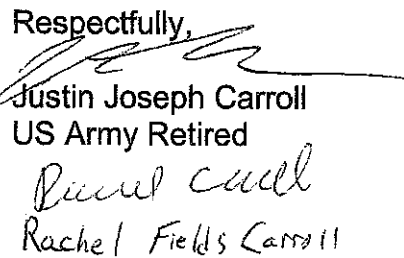 Respectfully,
Justin Joseph Carroll
US Army Retired
Rachel Fields Carroll